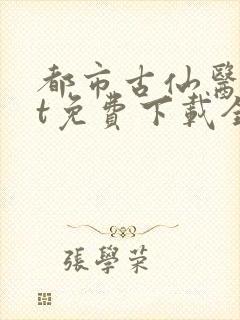 都市古仙醫
t免費下載全
張學荣